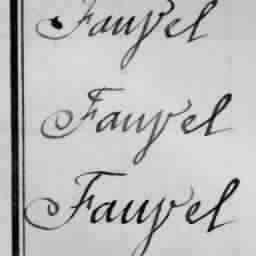 Fauvel
Fauvel
Fauvel